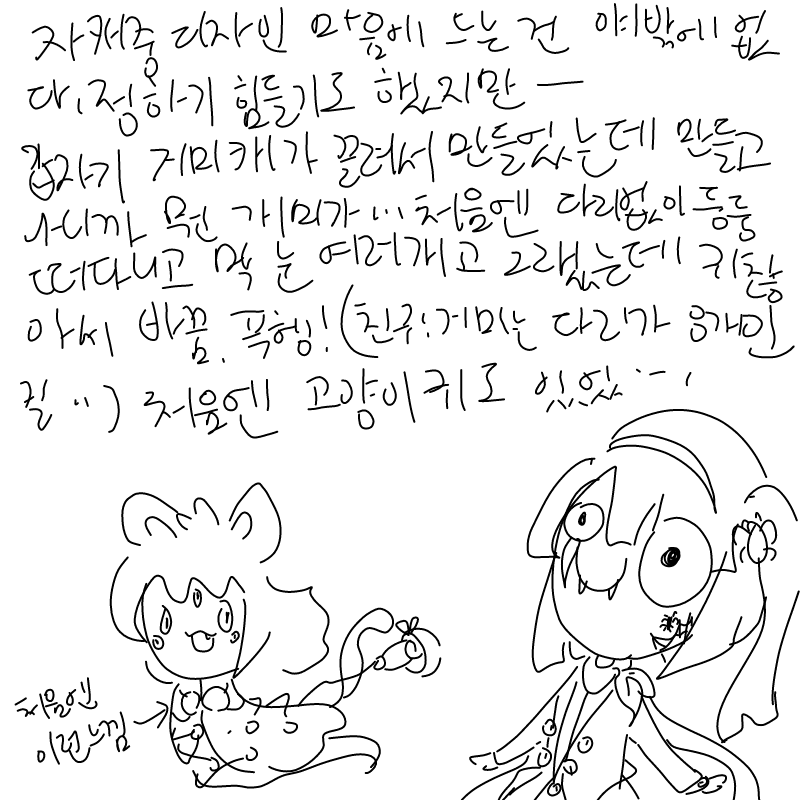 자캐중 디자인 마음에 드는 건 얘밖에 없
다, 정하기 힘들기로 했지만ㅡ
갑자기 거미캐가 끌려서 만들었는데 만들고
나니까 뭔 개미가... 처음엔 다리없이 둥둥
떠다니고 막 눈 여러개고 그랬는데 귀찮
아씨 바꿈. 폭헹! (친구: 거미는 다리가 8개인
길 ..) 처음엔 고양이 귀로 있었...
처음엔
이런느낌